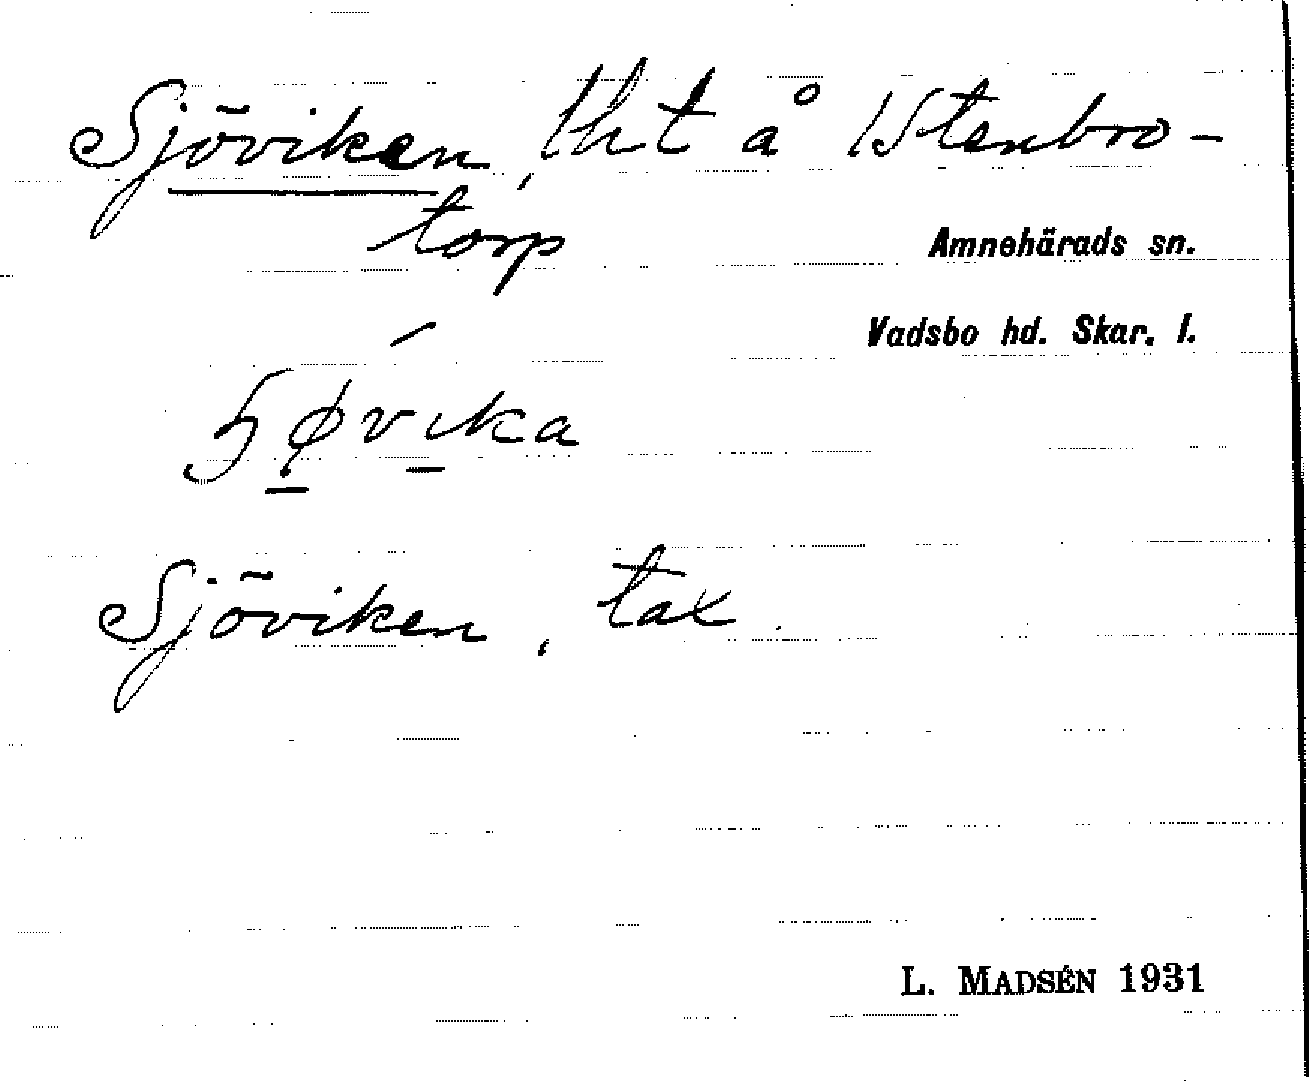 Sjöviken, lht å 1 Stenbro-
torp
Amnehärads sn.
Vadsbo hd. Skar. l.
Sjöviken, tax.
L. MADSÉN 1931